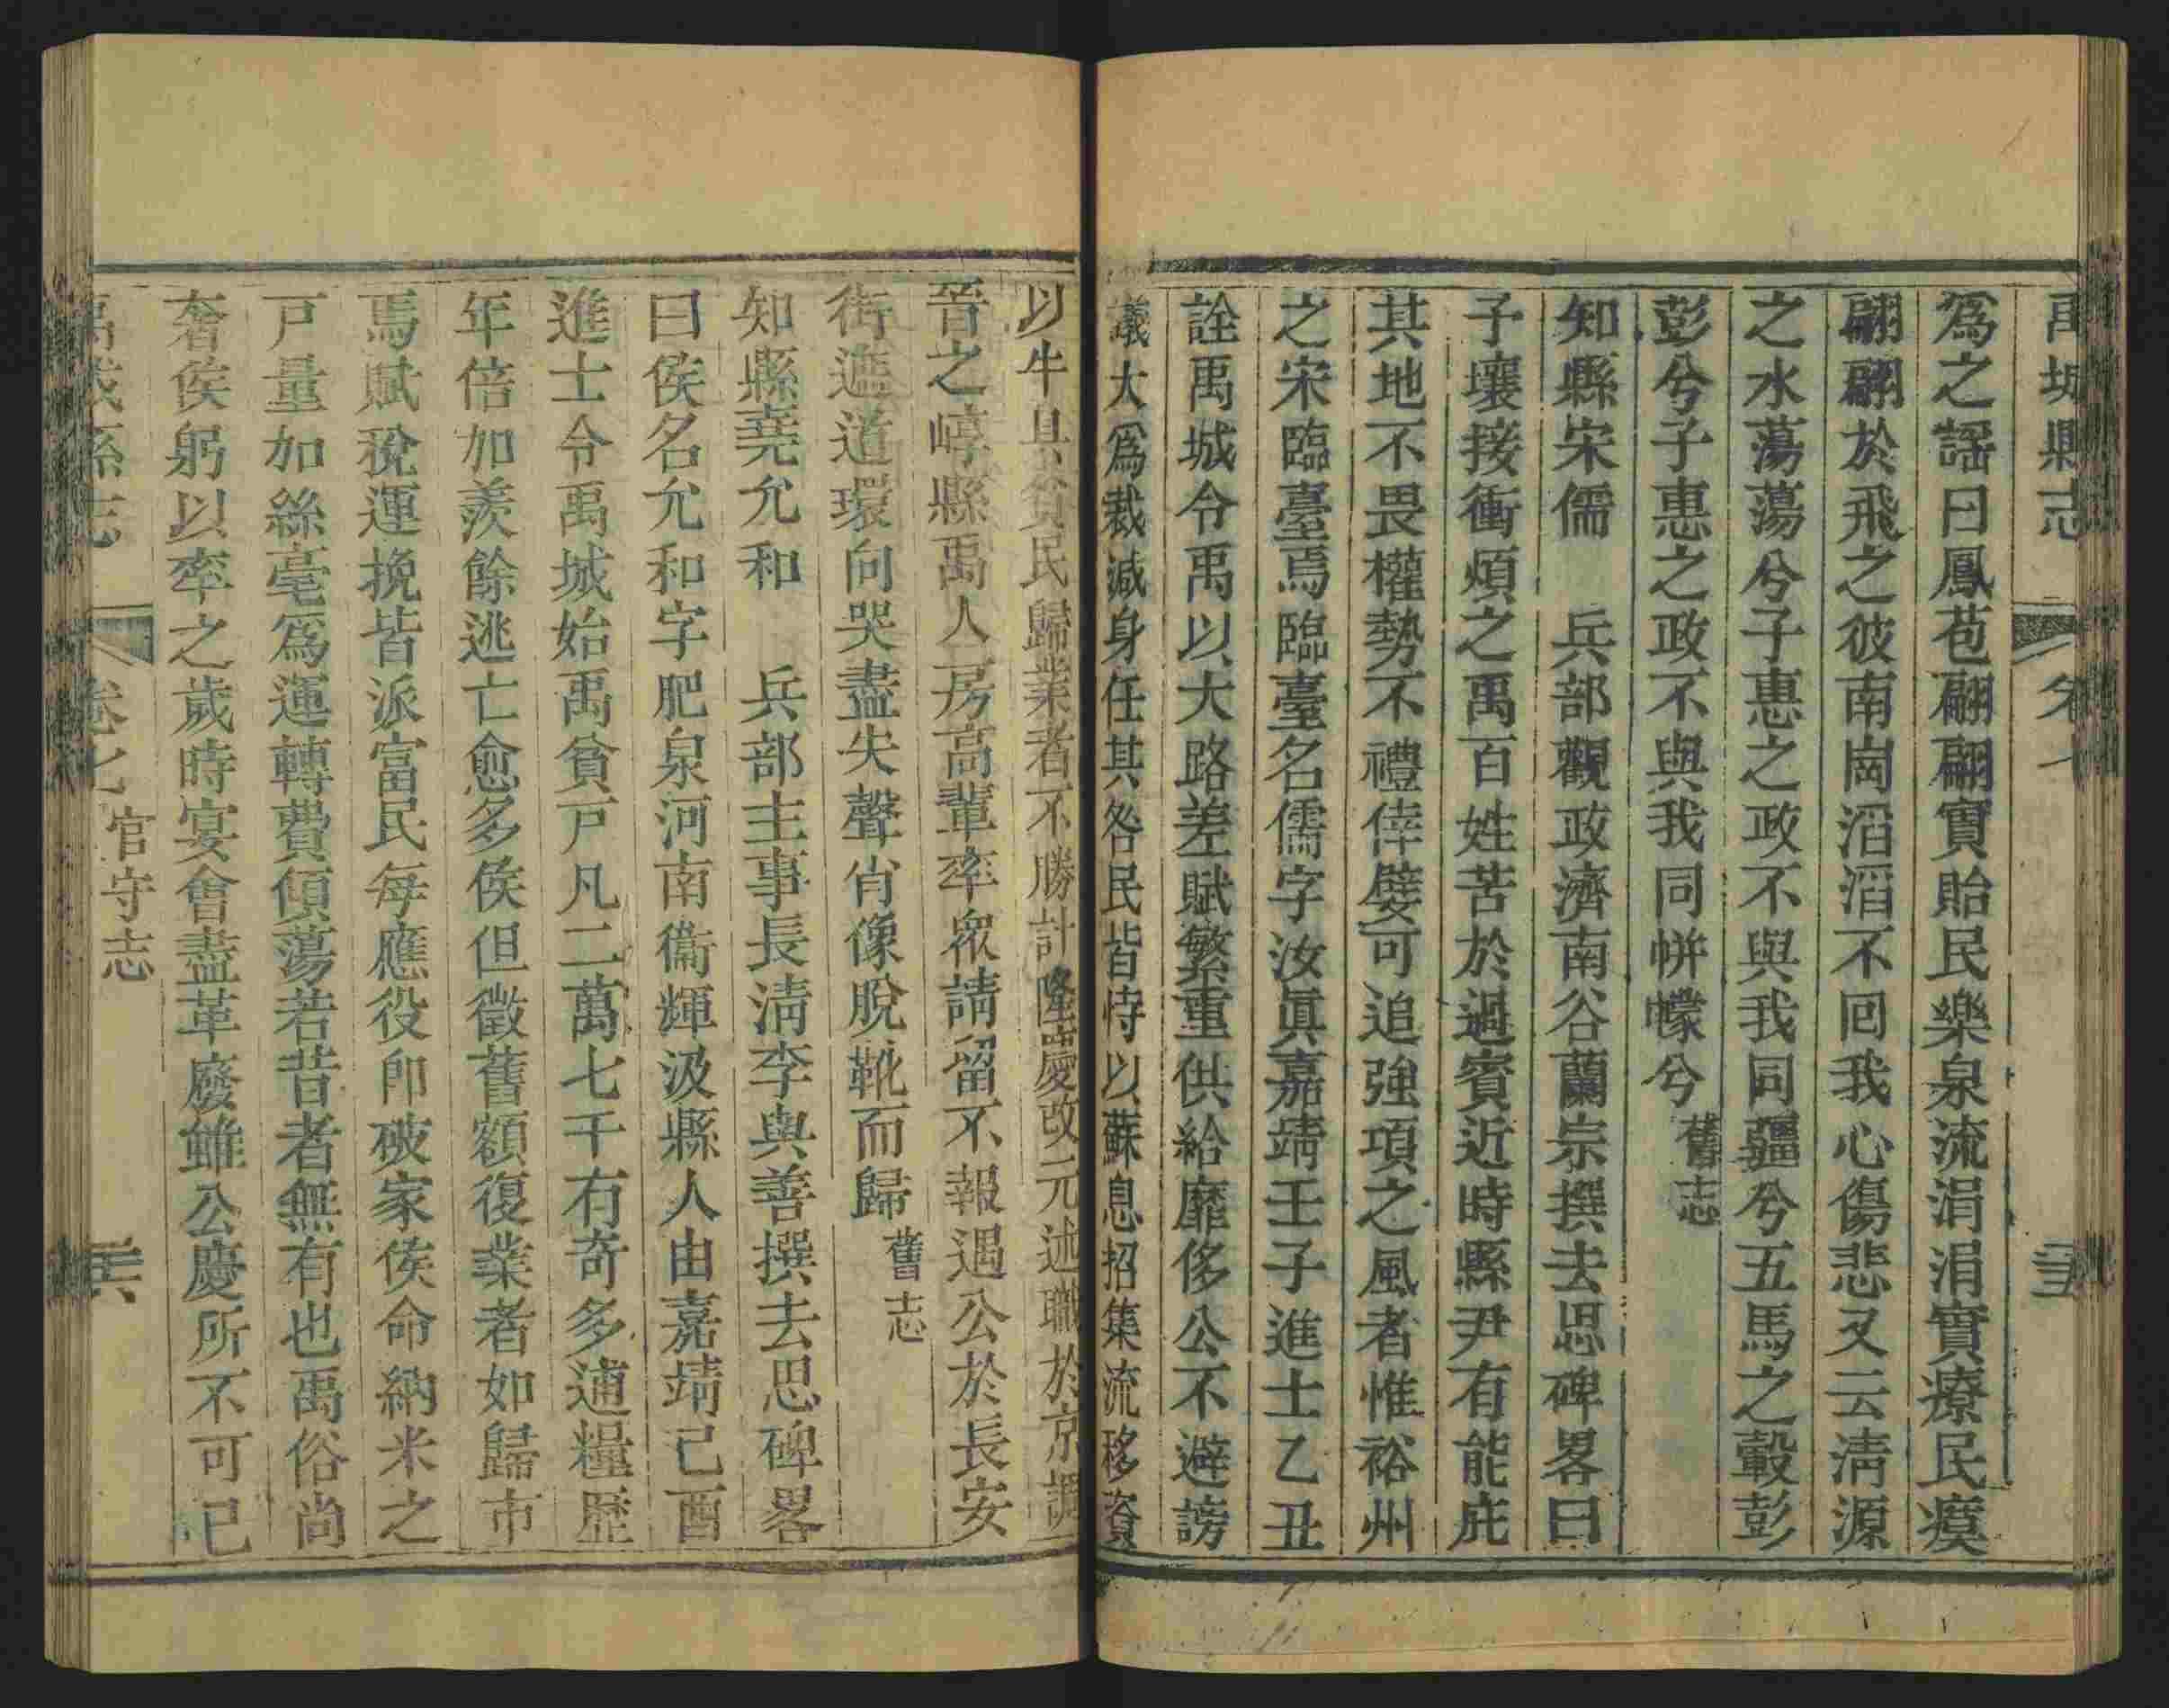 禹城縣志　卷七　三五
爲之謡曰鳳苞翩翩實貽民樂泉流涓涓實療民瘼
翩翩於飛之彼南崗滔滔不囘我心傷悲又云清源
之水蕩蕩兮子惠之政不與我同疆兮五馬之轂彭
彭兮子惠之政不與我同帡幪兮舊志
知縣宋儒　兵部觀政濟南谷蘭宗撰去思碑畧曰
子壤接衝煩之禹百姓苦於過賓近時縣尹有能庇
其地不畏權勢不禮倖嬖可追強項之風者惟裕州
之宋臨臺焉臨臺名儒字汝眞嘉靖壬子進士乙丑
詮禹城令禹以大路差賦繁重供給靡侈公不避謗
議大爲裁減身任其咎民皆恃以蘇息招集流移資
以牛具貧民歸業者不勝計隆慶改元述職於京調
晉之崞縣禹人房高輩率衆請留不報遏公於長安
街遮道環向哭盡失聲肖像脫靴而歸舊志
知縣堯允和　兵部主事長淸李與善撰去思碑畧
曰侯名允和字肥泉河南衞輝汲縣人由嘉靖己酉
進士令禹城始禹貧戸凡二萬七千有奇多逋糧歷
年倍加羨餘逃亡愈多侯但徵舊額復業者如歸市
馬賦稅運挽皆派富民每應役卽破家侯命納米之
戸量加絲毫爲運轉費傾蕩若昔者無有也禹俗尚
奢侯躬以率之歲時宴會盡革廢雖公慶所不可已
禹城縣志　卷七　官守志　三六